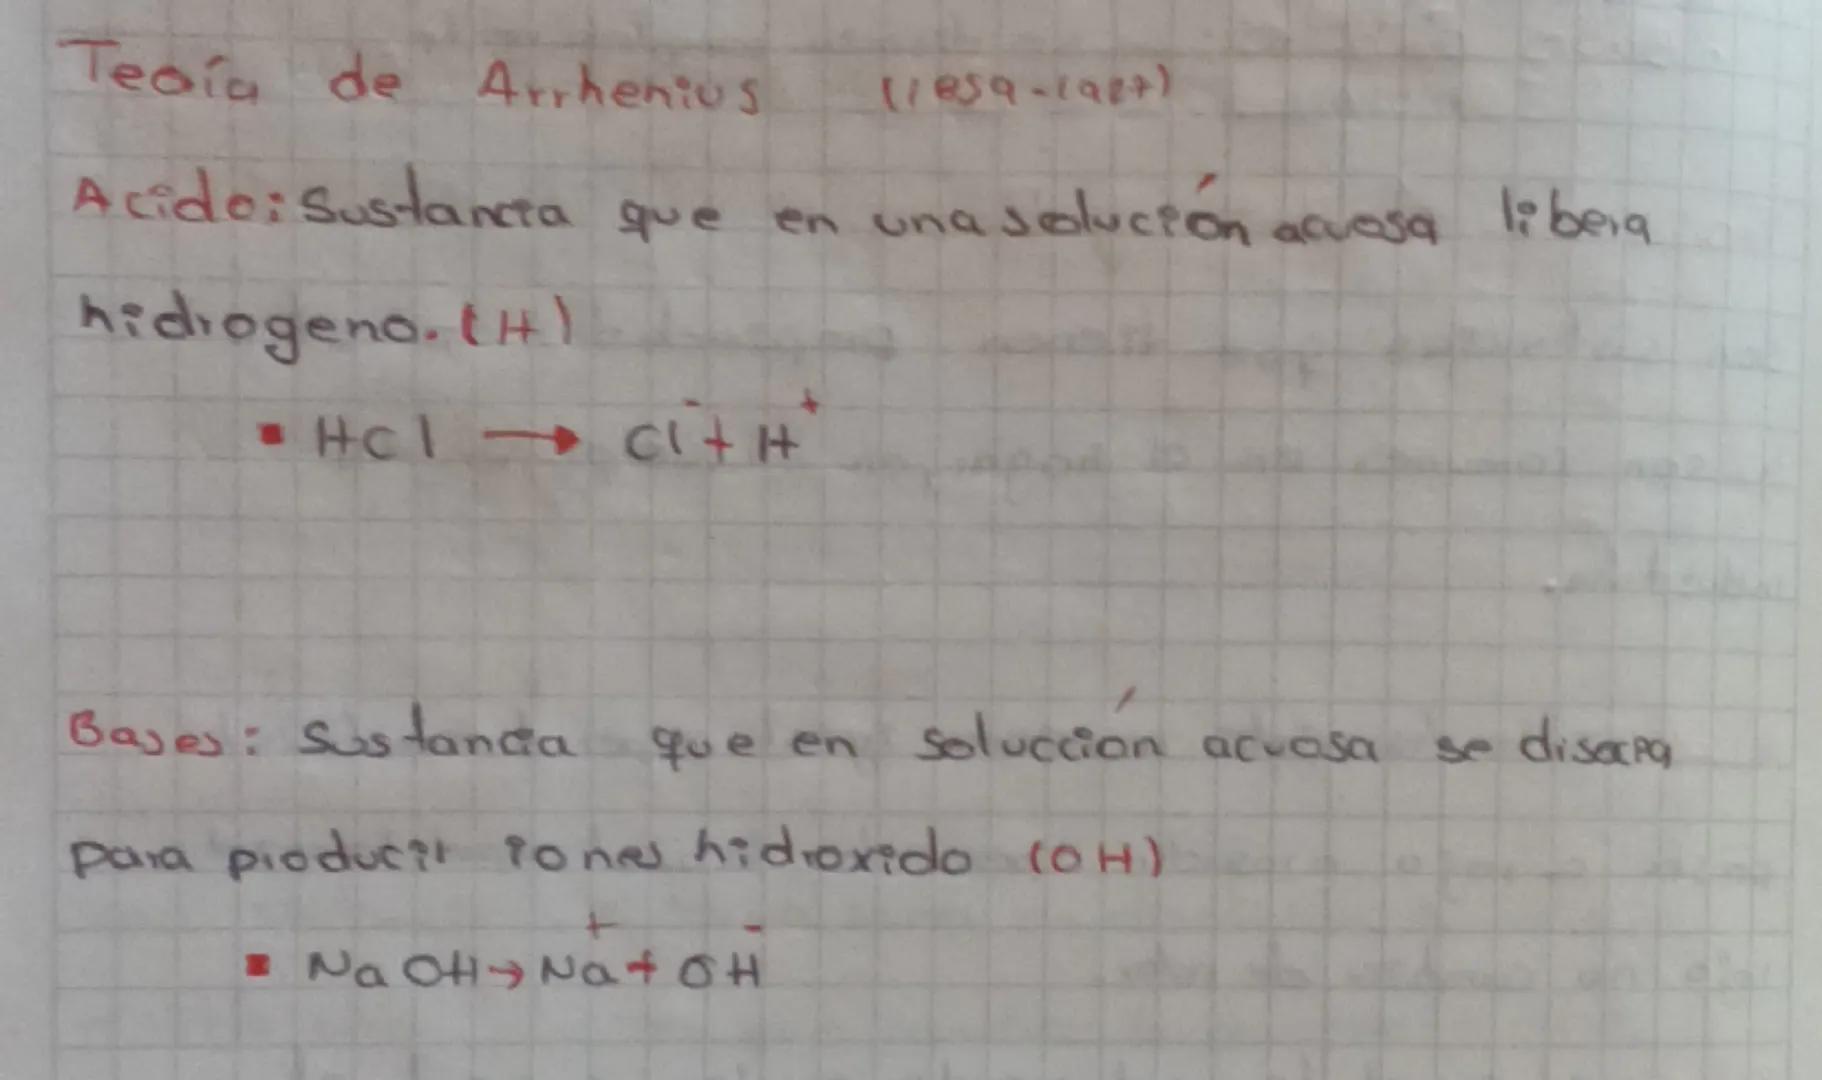 Teoría de Arrhenius (1859-1927)
Acido: Sustancia que en una solución acuosa libera
hidrogeno. (H)
▪ HCl → Cl⁻ + H⁺
Bases: Sustancia que en solucción acuosa se disocia
para producir iones hidroxido (OH)
▪ NaOH → Na⁺ + OH⁻